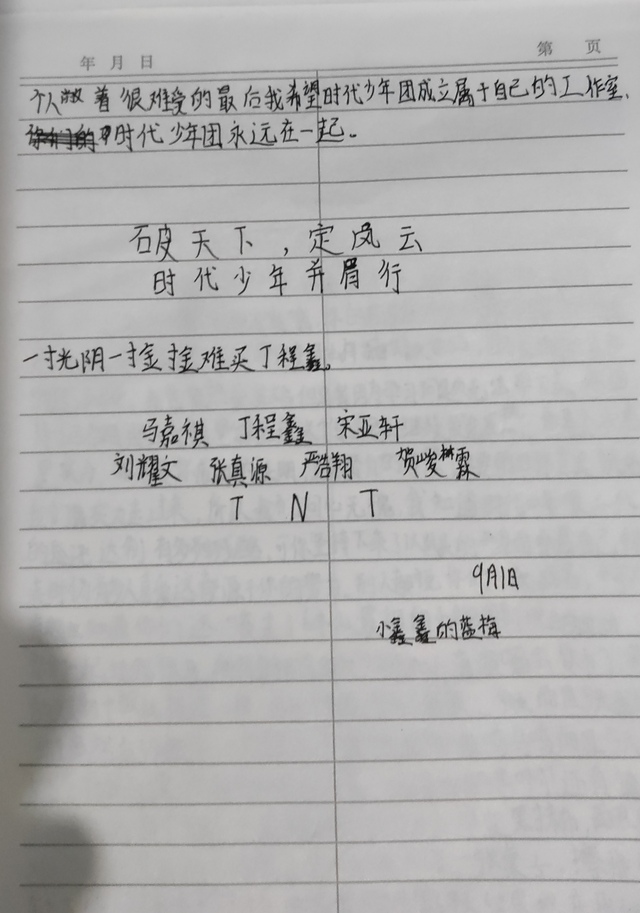 年 月 日 第 页
个人憋着很难受的最后我希望时代少年团成立属于自己的工作室、
时代少年团永远在一起。
破天下，定风云
时代少年并肩行
一寸光阴一寸金寸金难买丁程鑫。
马嘉祺 丁程鑫 宋亚轩
刘耀文 张真源 严浩翔 贺峻霖
T N T
9月1日
小鑫鑫的蓝莓